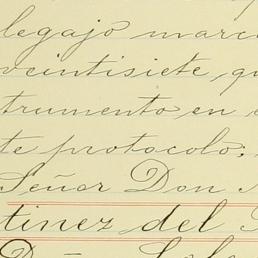 legajo marc
veintisiete, qu
trumento en
te protocolo.
Señor Don
tinez del